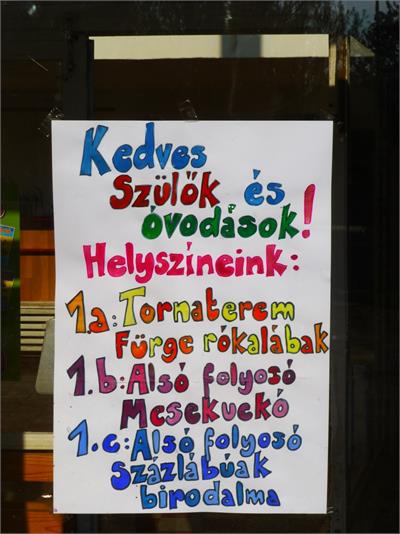 Kedves
Szülők és
óvodások!
Helyszíneink:
1.a: Tornaterem
Fürge rókalábak
1.b: Alsó folyosó
Mesekuckó
1.c: Alsó folyosó
Százlábúak
birodalma